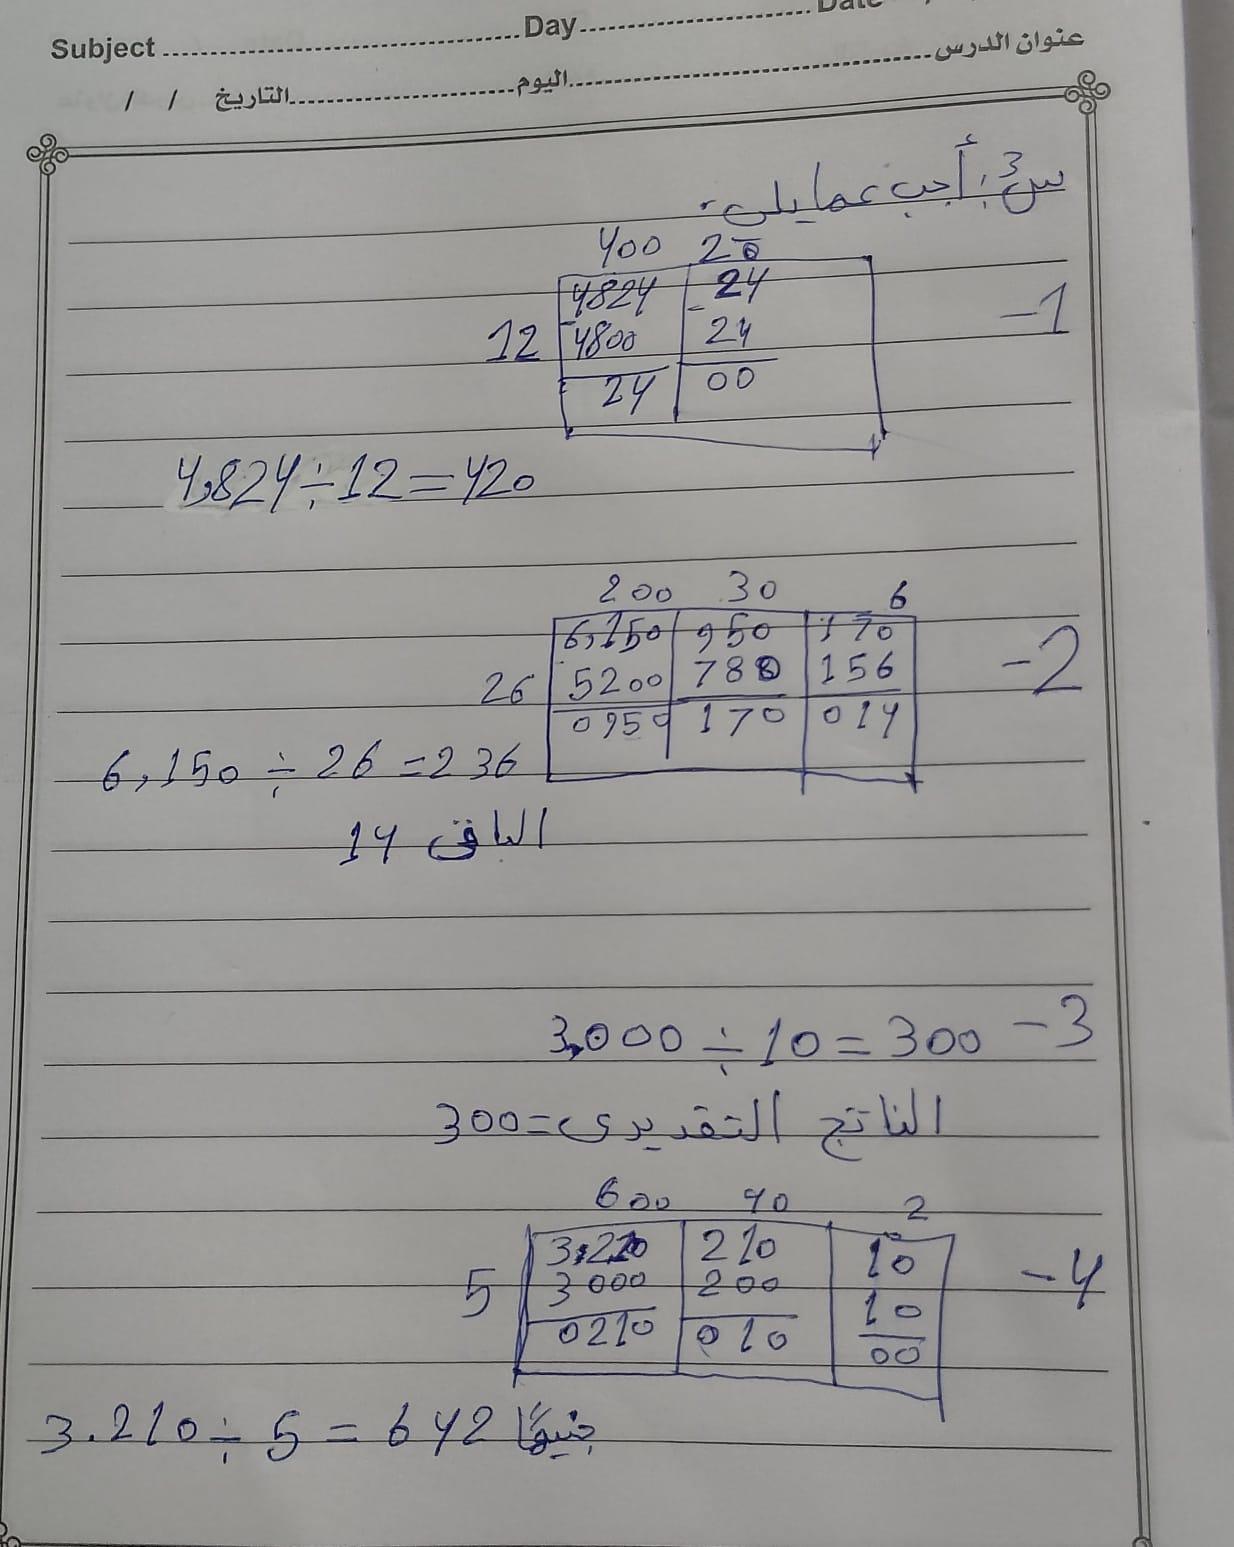 Subject Day Date
عنوان الدرس اليوم التاريخ / /
س3: أجب عما يلى:
400 20
-1
4824 24
12 - 4800 - 24
24 00
4,824 ÷ 12 = 420
200 30 6
-2
6,150 950 170
26 5200 780 156
0950 170 014
6,150 ÷ 26 = 236
الباقى 14
3,000 ÷ 10 = 300 -3
الناتج التقديرى = 300
600 40 2
-4
3,210 210 10
5 3000 200 10
0210 010 00
3.210 ÷ 5 = 642 جنيهًا